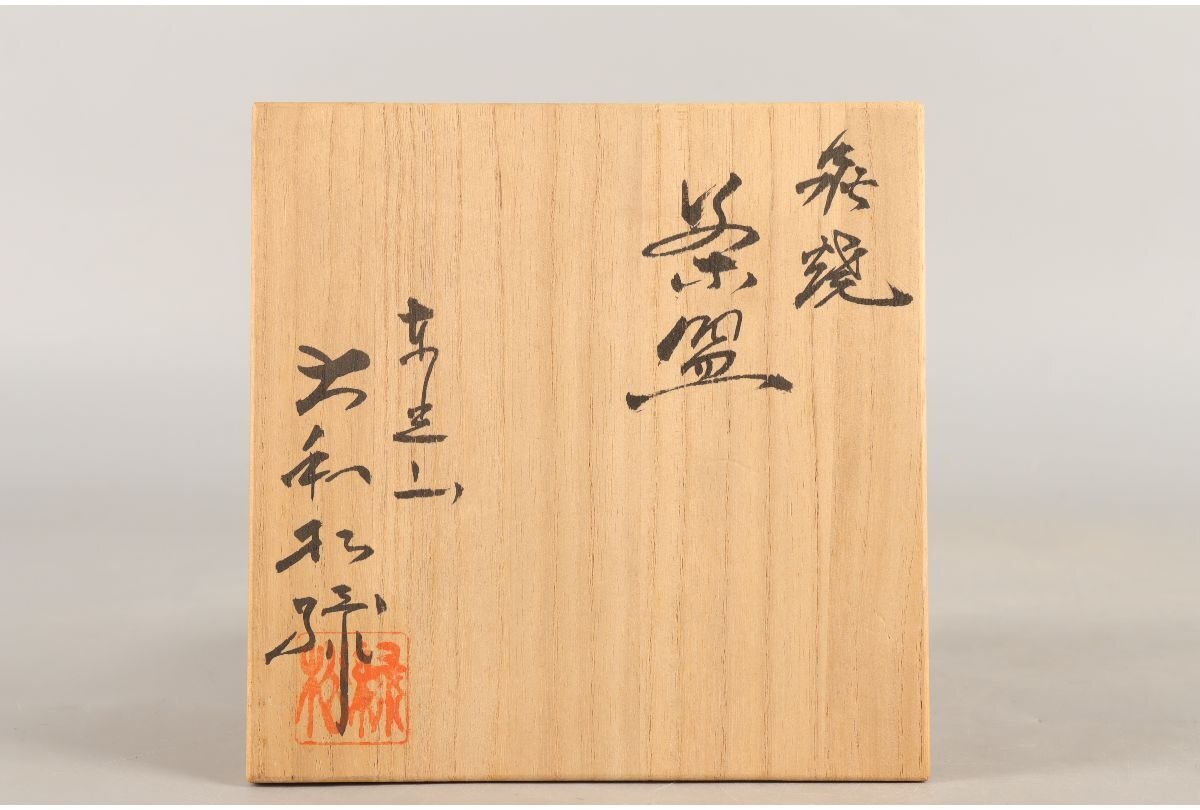 萩焼
茶盌
東光山
大和松緑
松緑